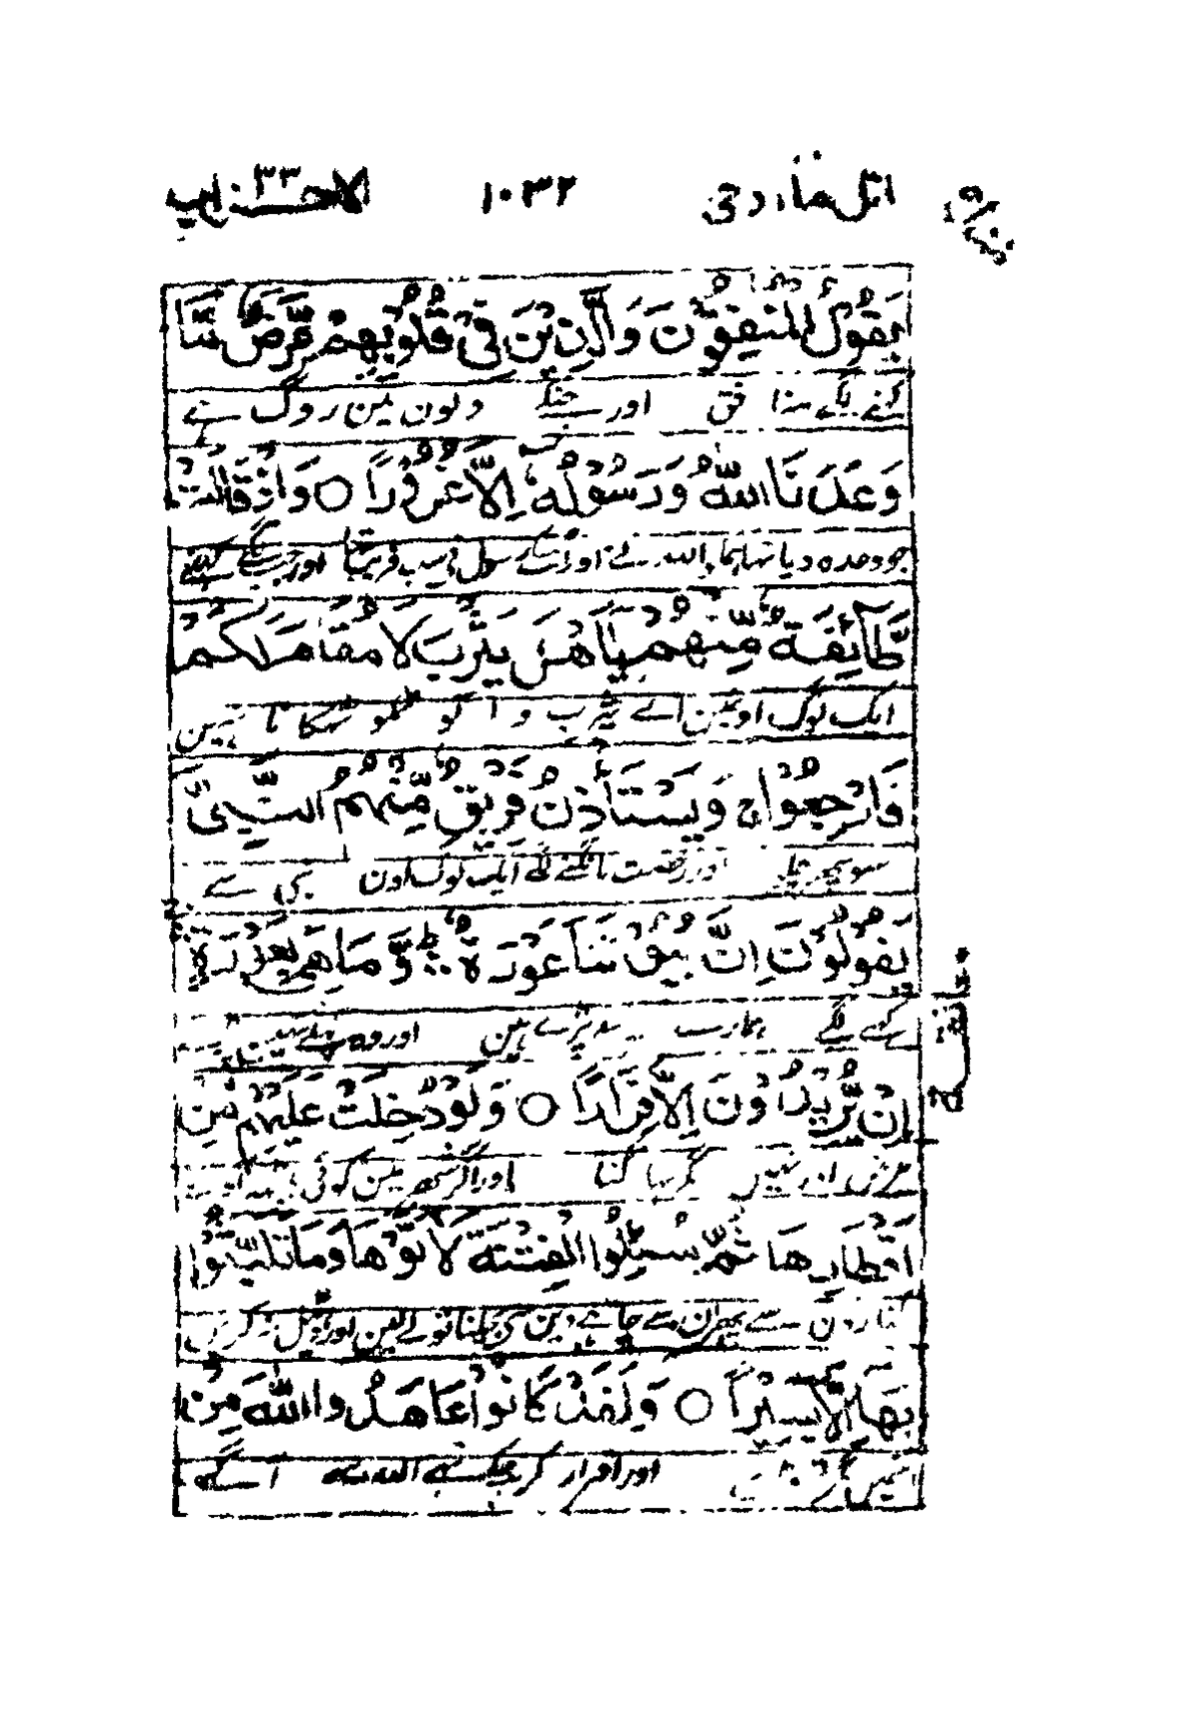 اتل ما اوحی ۱۰۳۲ الاحزاب ۳۳
يَقُوْلُ الْمُنٰفِقُوْنَ وَالَّذِيْنَ فِيْ قُلُوْبِهِمْ مَّرَضٌ مَّا
کہنے لگے منافق اور جنکے دلون مین روگ ہے
وَعَدَنَا اللّٰهُ وَرَسُوْلُهٗ اِلَّا غُرُوْرًا ○ وَاِذْ قَالَتْ
جو وعدہ دیا تہا ہمکو اللہ نے اور اسکے رسول نے سب فریب تہا اور جب کہنے لگے
طَّآئِفَةٌ مِّنْهُمْ يٰاَهْلَ يَثْرِبَ لَا مُقَامَ لَكُمْ
ایک لوگ اونمین اے یثرب والو تمکو ٹہکانا نہین
فَارْجِعُوْا ج وَيَسْتَاْذِنُ فَرِيْقٌ مِّنْهُمُ النَّبِيَّ
سو پھر چلو اور رخصت مانگنے لگے ایک لوگ اون نبی سے
يَقُوْلُوْنَ اِنَّ بُيُوْتَنَا عَوْرَةٌ وَّمَا هِيَ بِعَوْرَةٍ
کہنے لگے ہمارے پڑے ہین اور وہ
معانقة
اِنْ يُّرِيْدُوْنَ اِلَّا فِرَارًا ○ وَلَوْ دُخِلَتْ عَلَيْهِمْ مِّنْ
اور نہین مگر بہاگنا اور اگر شہر مین کوئی
اَقْطَارِهَا ثُمَّ سُئِلُوا الْفِتْنَةَ لَاٰتَوْهَا وَمَا تَلَبَّثُوْا
کنارون سے پھر ان سے چاہے دین سے بچلنا تو لے لین اور ڈھیل نہ کرین
بِهَا اِلَّا يَسِيْرًا ○ وَلَقَدْ كَانُوْا عَاهَدُوا اللّٰهَ مِنْ
اور اقرار کر چکے تہے اللہ سے آگے